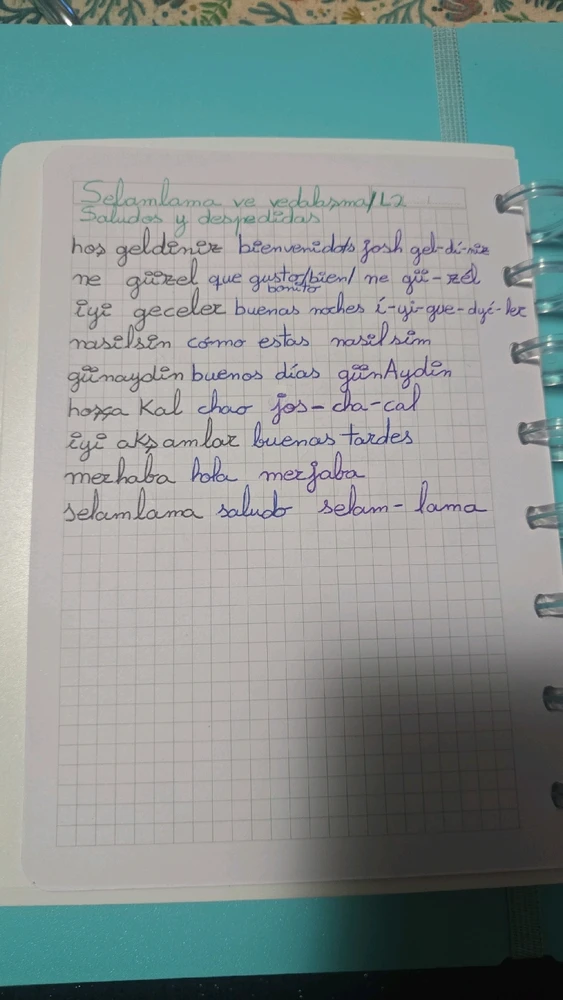 Selamlama ve vedalaşma/L2
Saludos y despedidas
hoş geldiniz bienvenido/s josh gel-di-niz
ne güzel que gusto/bien/ ne gü-zél
bonito
iyi geceler buenas noches í-yi-gue-dyé-ler
nasilsin cómo estas nasilsim
günaydin buenos días günAydin
hoşça Kal chao jos-cha-cal
iyi akşamlar buenas tardes
merhaba hola merjaba
selamlama saludo selam-lama